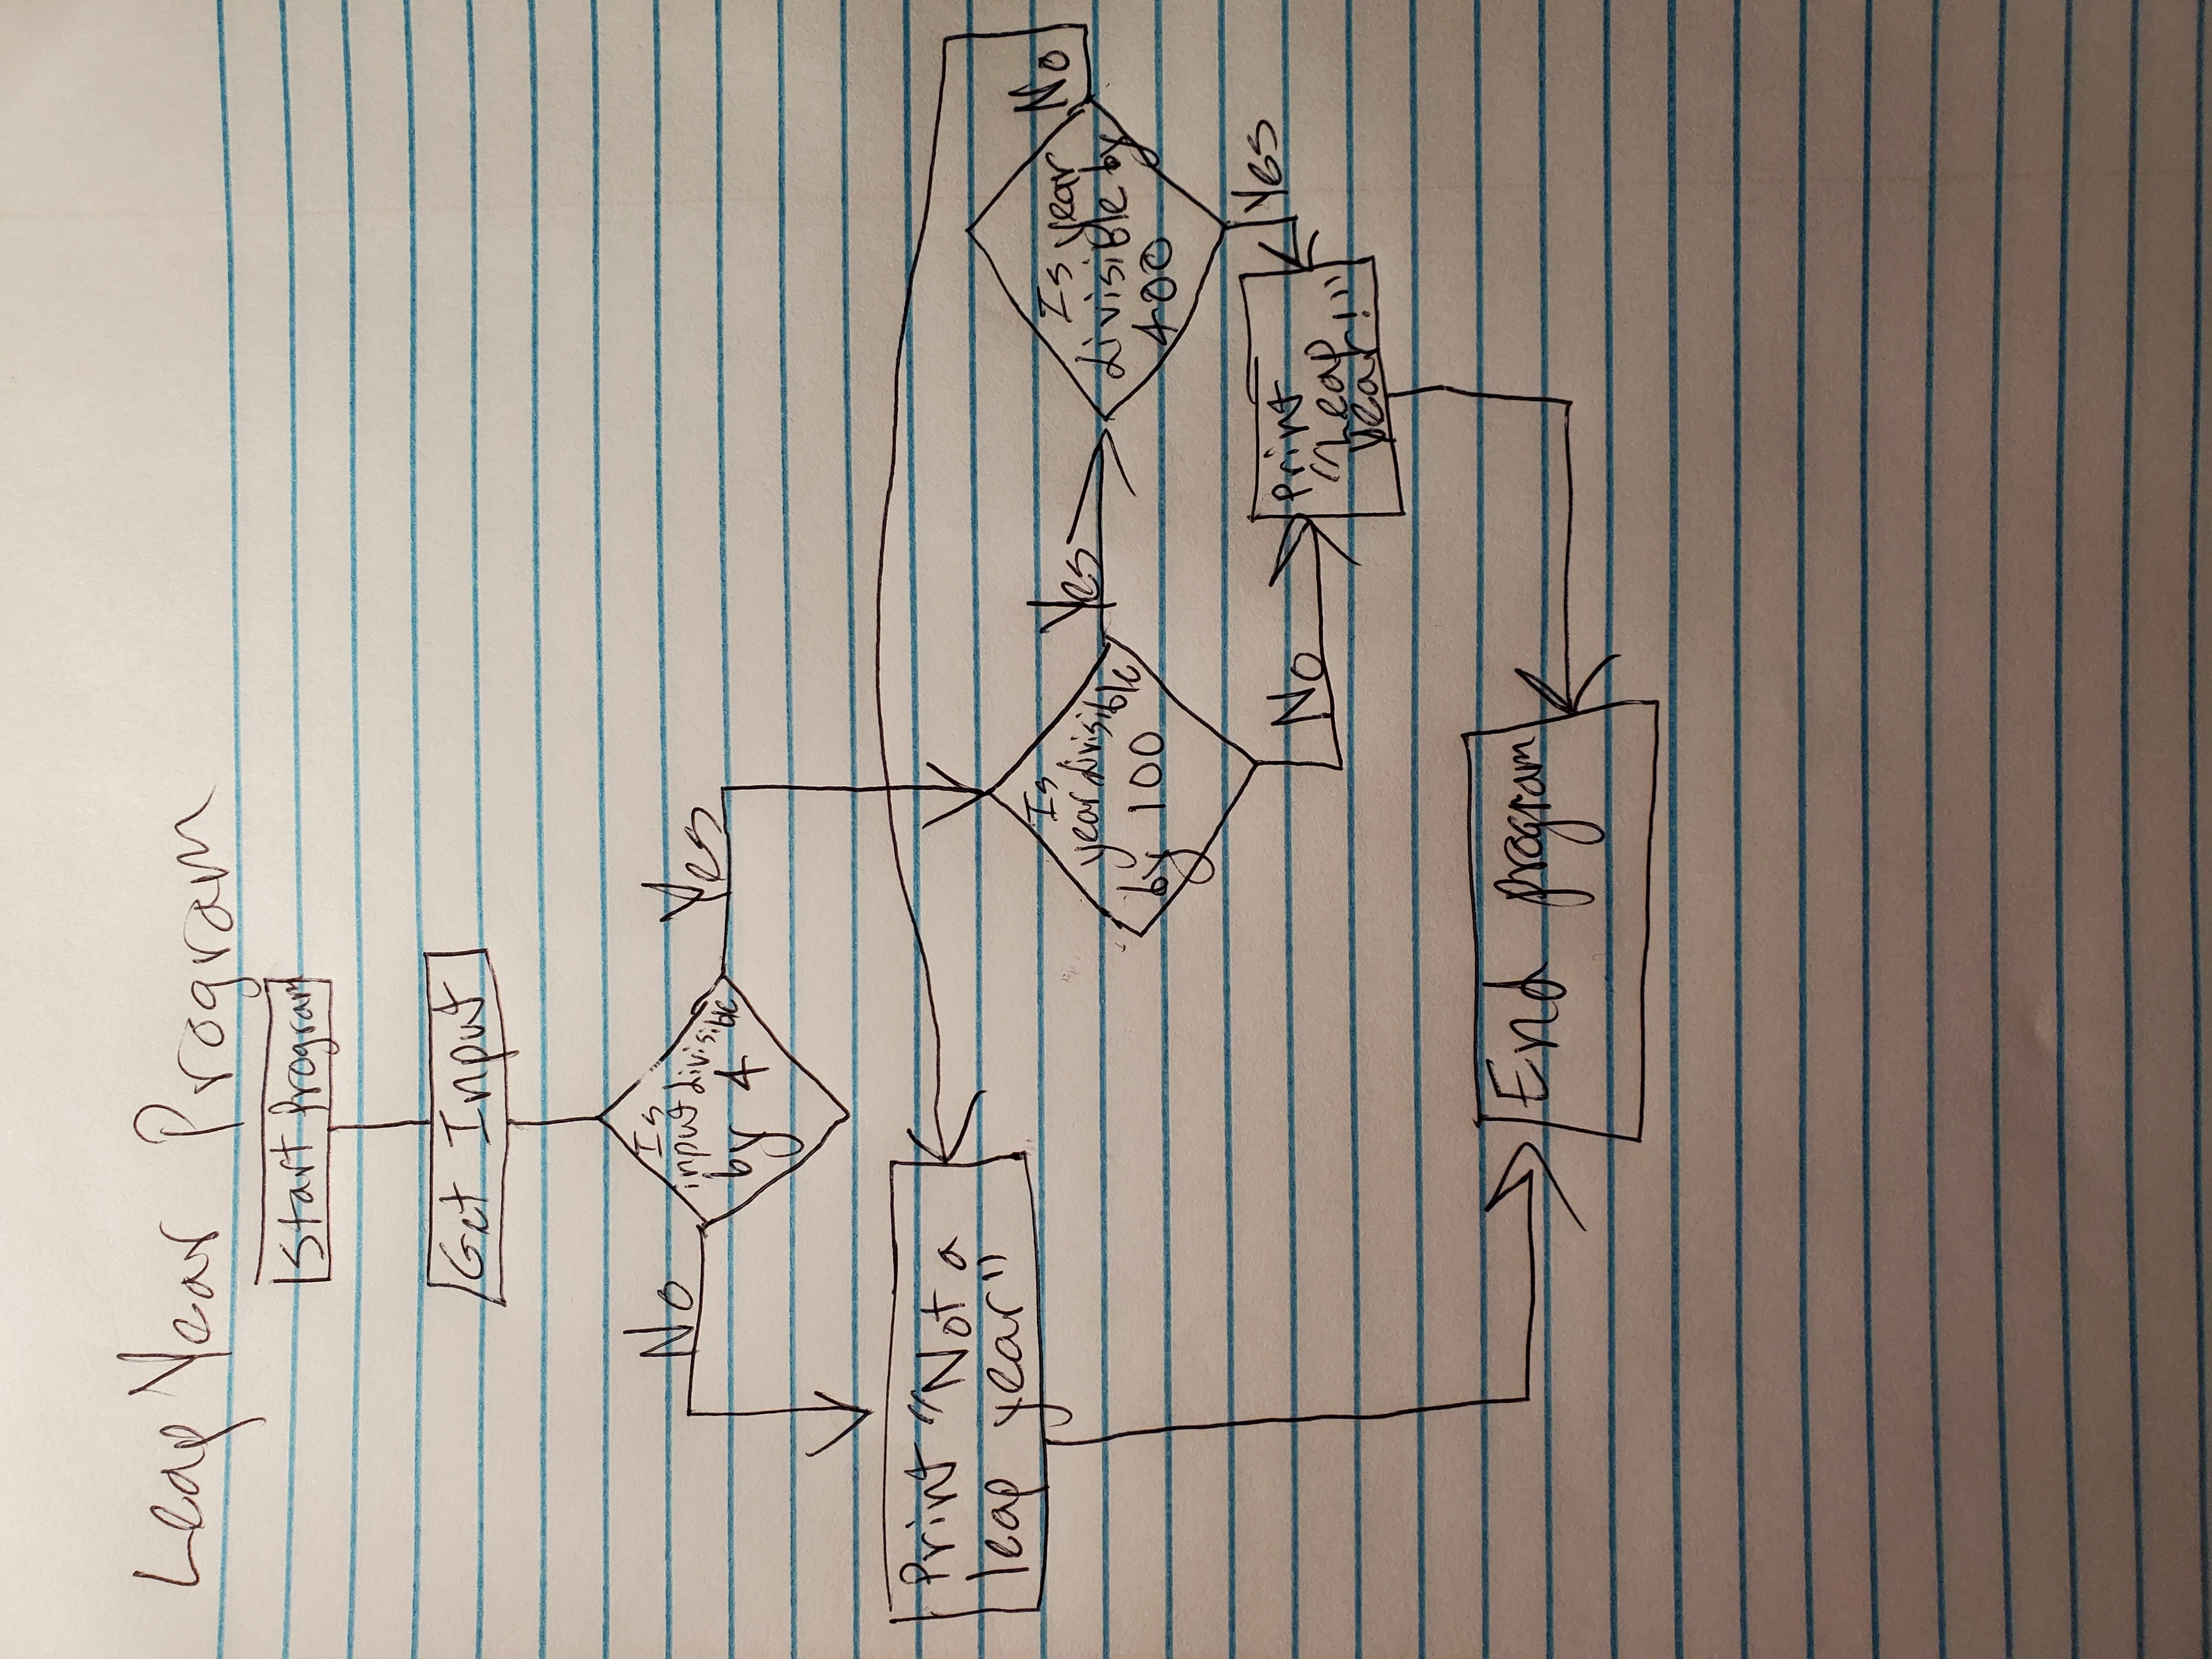 Leap Year Program
Start Program
Get Input
No
Is
input divisible
by 4
Yes
Print "Not a
leap year"
Is
year divisible
by 100
Yes
Is year
divisible by
400
No
No
Print
"Leap
Year!"
Yes
End program